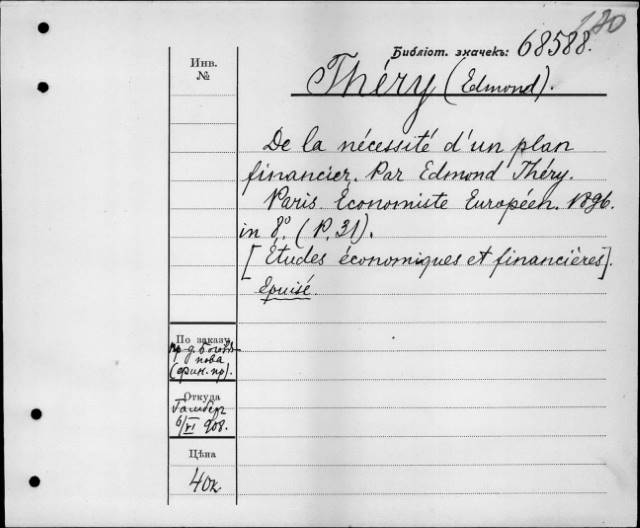 180
Библіот. значекъ: 68588.
Инв.
№
Théry (Edmond).
De la nécessité d'un plan
financier. Par Edmond Théry.
Paris. Economiste Européen. 1896.
in 8.° (P. 31).
[Etudes économiques et financières].
Epuisé
По заказу
пр-д.
пова
(фин. пр).
Откуда
Гамбер
6/VI 908.
Цѣна
40к.